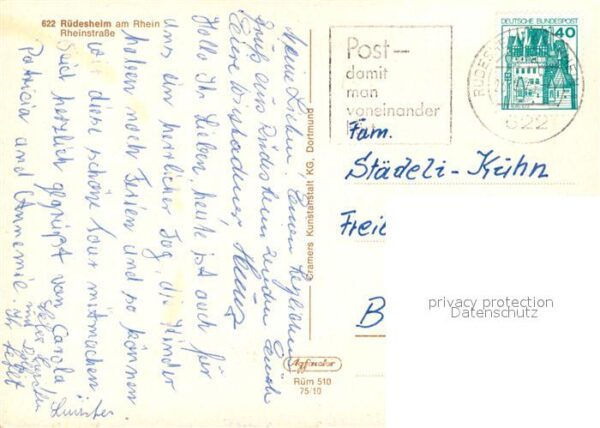 622 Rüdesheim am Rhein
Rheinstraße
Meine Lieben! Einen herzlichen
Gruß aus Rüdesheim senden Euch
Eure Wiesbadener
Hallo Ihr Lieben, heute ist auch für
uns ein herrlicher Tag, die Kinder
haben noch Ferien und so können
wir diese schöne Tour mitmachen
Seid herzlich gegrüßt von Carola
Patricia und Annemie.
Cramers Kunstanstalt KG, Dortmund
Agfacolor
Rüm 510
75/10
Post –
damit
man
voneinander
DEUTSCHE BUNDESPOST
40
622
Fam.
Städeli-Kühn
Freie
B
privacy protection
Datenschutz